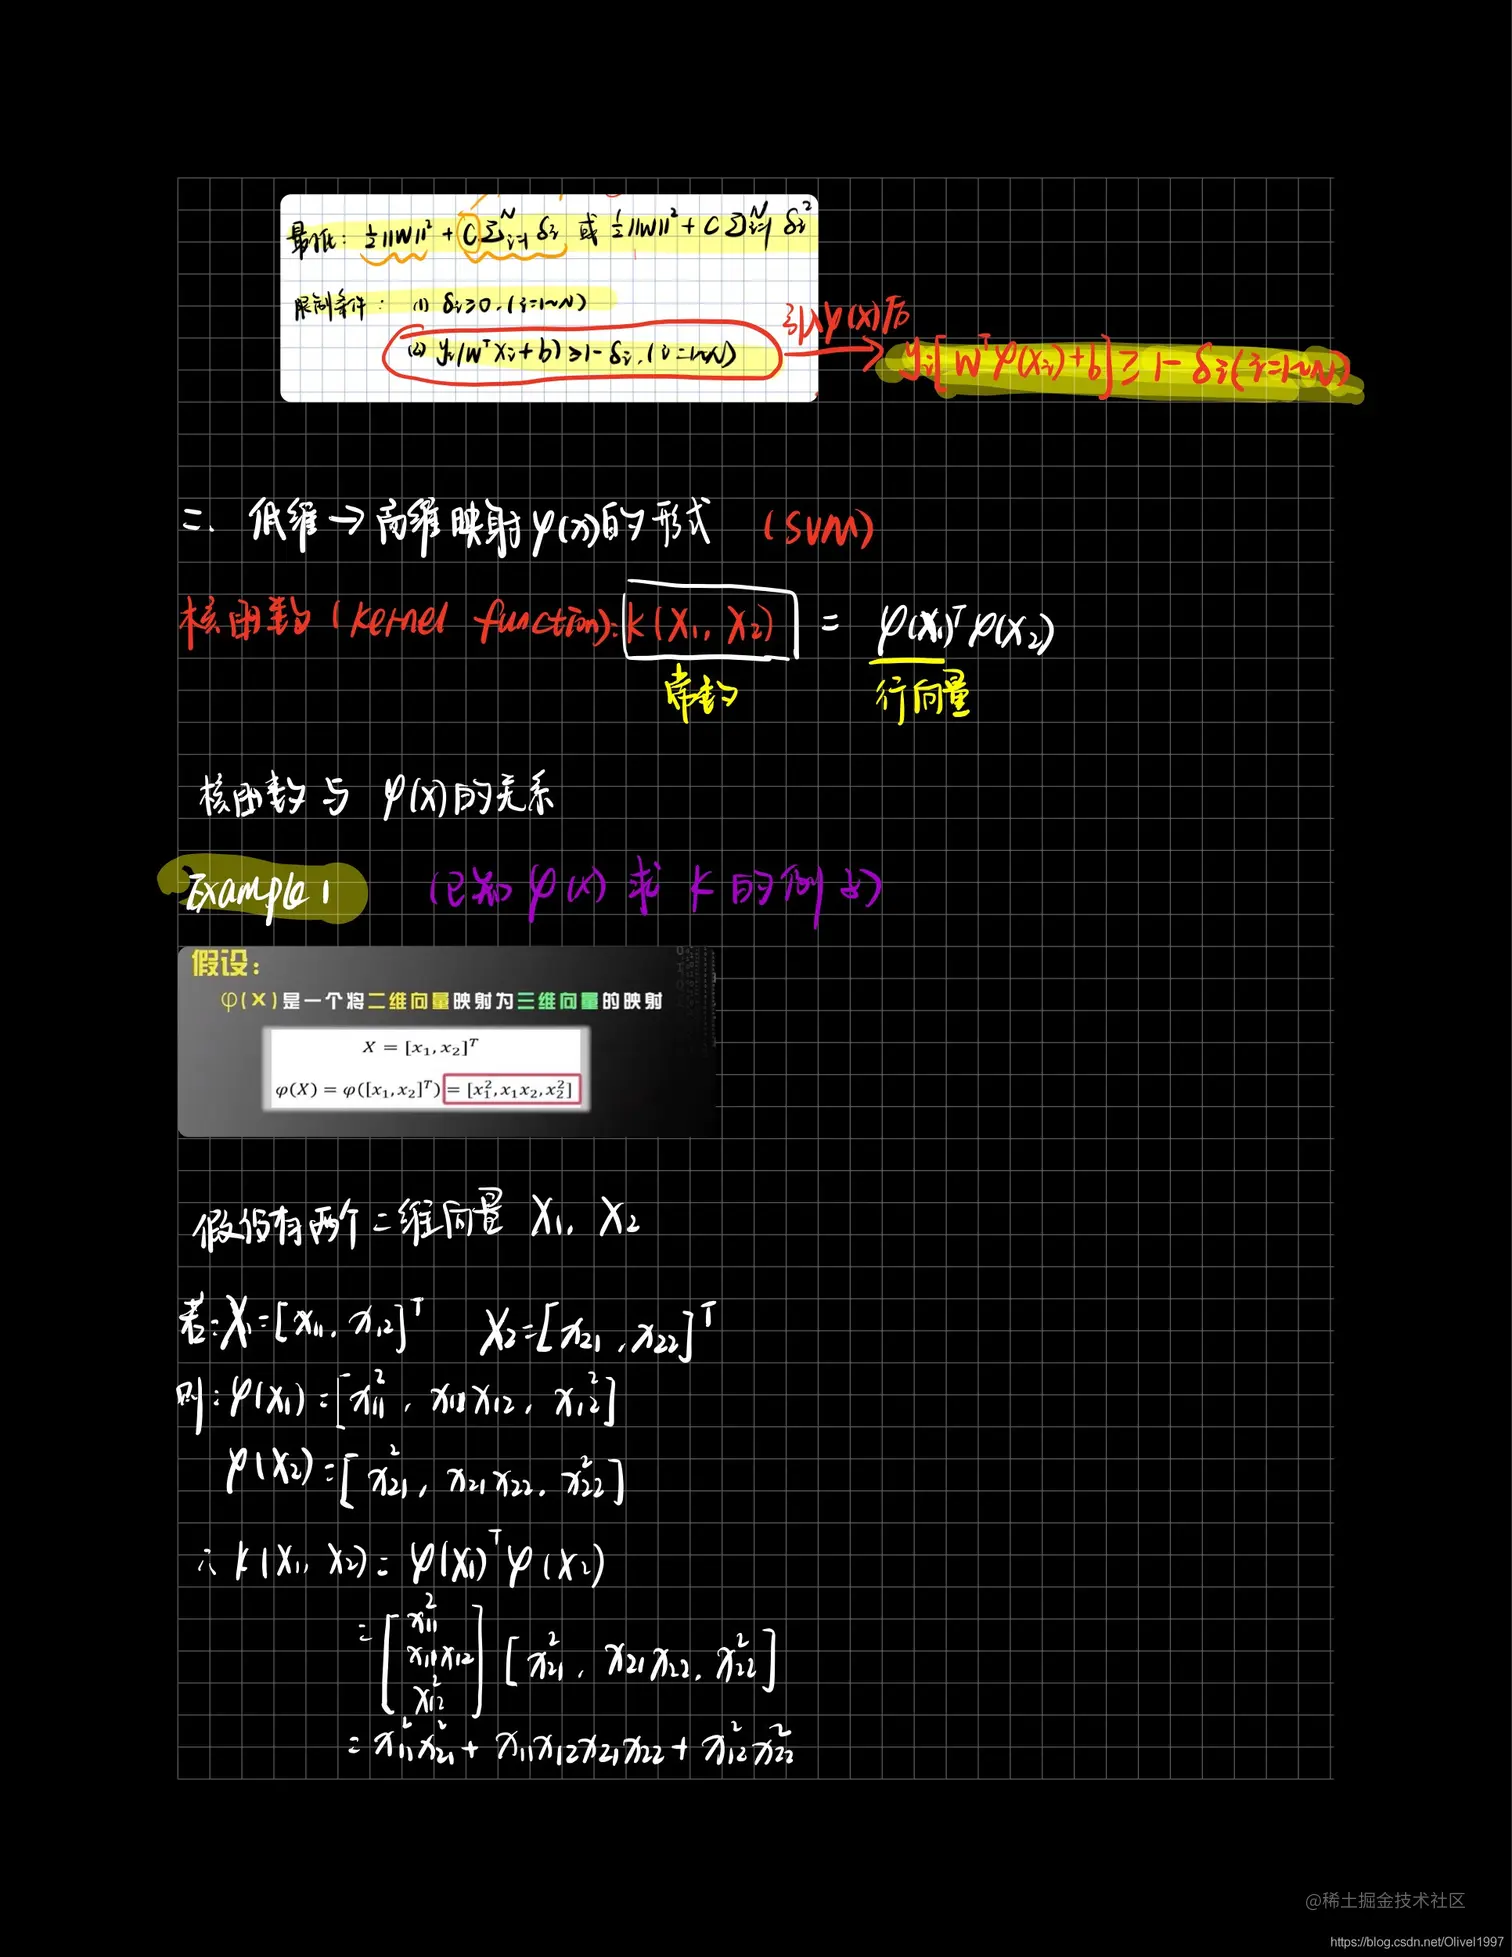 最小化：½||W||² + C∑ᵢ₌₁ᴺ δᵢ 或 ½||W||² + C∑ᵢ₌₁ᴺ δᵢ²
限制条件：(1) δᵢ≥0.(i=1~N)
(2) yᵢ(WᵀXᵢ+b)≥1-δᵢ.(i=1~N)
引入φ(X)后
yᵢ[Wᵀφ(Xᵢ)+b]≥1-δᵢ(i=1~N)
二. 低维→高维映射φ(x)的形式 (SVM)
核函数(kernel function):K(X₁, X₂) = φ(X₁)ᵀφ(X₂)
常数 行向量
核函数与 φ(X)的关系
Example1 (已知φ(x)求 K 的例子)
假设：
φ(X)是一个将二维向量映射为三维向量的映射
X = [x₁, x₂]ᵀ
φ(X) = φ([x₁, x₂]ᵀ) = [x₁², x₁x₂, x₂²]
假设有两个二维向量 X₁, X₂
若:X₁=[x₁₁, x₁₂]ᵀ X₂=[x₂₁, x₂₂]ᵀ
则:φ(X₁)=[x₁₁², x₁₁x₁₂, x₁₂²]
φ(X₂)=[x₂₁², x₂₁x₂₂, x₂₂²]
∴ K(X₁, X₂)= φ(X₁)ᵀφ(X₂)
= [x₁₁² x₁₁x₁₂ x₁₂²] [x₂₁², x₂₁x₂₂, x₂₂²]
= x₁₁²x₂₁² + x₁₁x₁₂x₂₁x₂₂ + x₁₂²x₂₂²
@稀土掘金技术社区
https://blog.csdn.net/Olivel1997